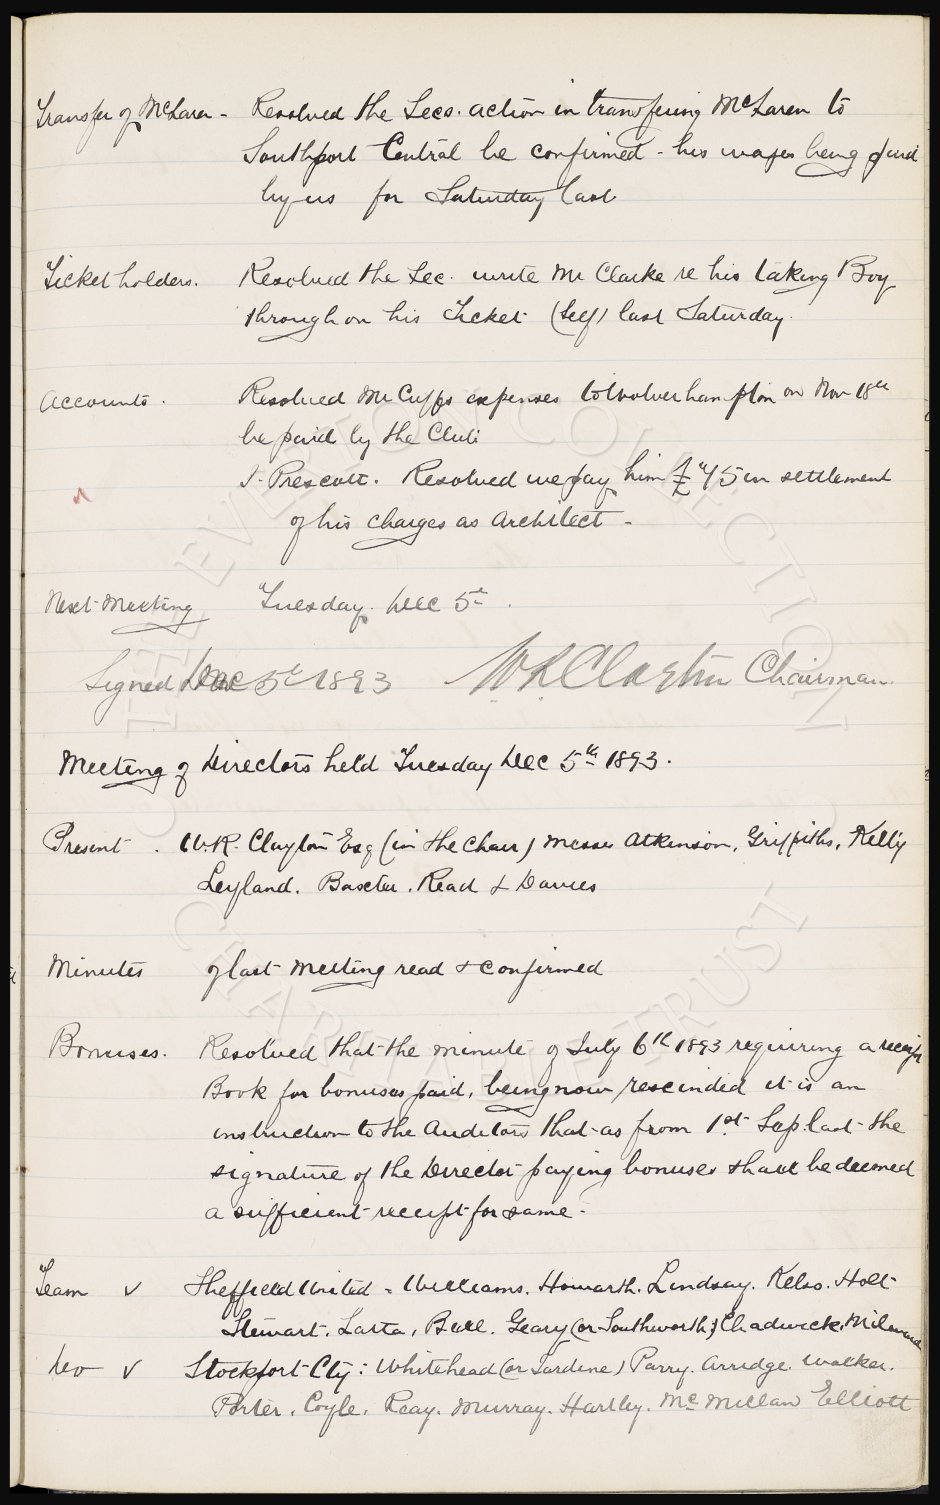 Transfer of McLaren - Resolved the Secs. action in transfering McLaren to
Southport Central be confirmed - his wages being paid
by us for Saturday last
Ticket holders. Resolved the Sec. write Mr Clarke re his taking Boy
through on his Ticket (Self) last Saturday.
Accounts. Resolved Mr Cuffs expenses to Wolverhampton on Nov 18th
be paid by the Club
J. Prescott. Resolved we pay him £45 in settlement
of his charges as Architect -
Next Meeting Tuesday. Dec 5th.
Signed Dec 5th 1893 W R Clayton Chairman.
Meeting of Directors held Tuesday Dec 5th 1893.
Present. W.R. Clayton Esq (in the Chair) Messrs Atkinson, Griffiths, Kelly
Leyland. Baxter. Read & Davies
Minutes of last meeting read & confirmed
Bonuses. Resolved that the minute of July 6th 1893 requiring a receipt
Book for bonuses paid, being now rescinded it is an
instruction to the Auditors that as from 1st Sep. last the
signature of the Director paying bonuses shall be deemed
a sufficient receipt for same -
Team v Sheffield United - Williams. Howarth. Lindsay. Kelso. Holt
Stewart. Latta, Bell. Geary (or Southworth) Chadwick, Milward
Do v Stockport Cty: Whitehead (or Jardine) Parry. Arridge. Walker.
Porter. Coyle. Reay. Murray. Hartley. McMillan Elliott
THE EVERTON COLLECTION
CHARITABLE TRUST